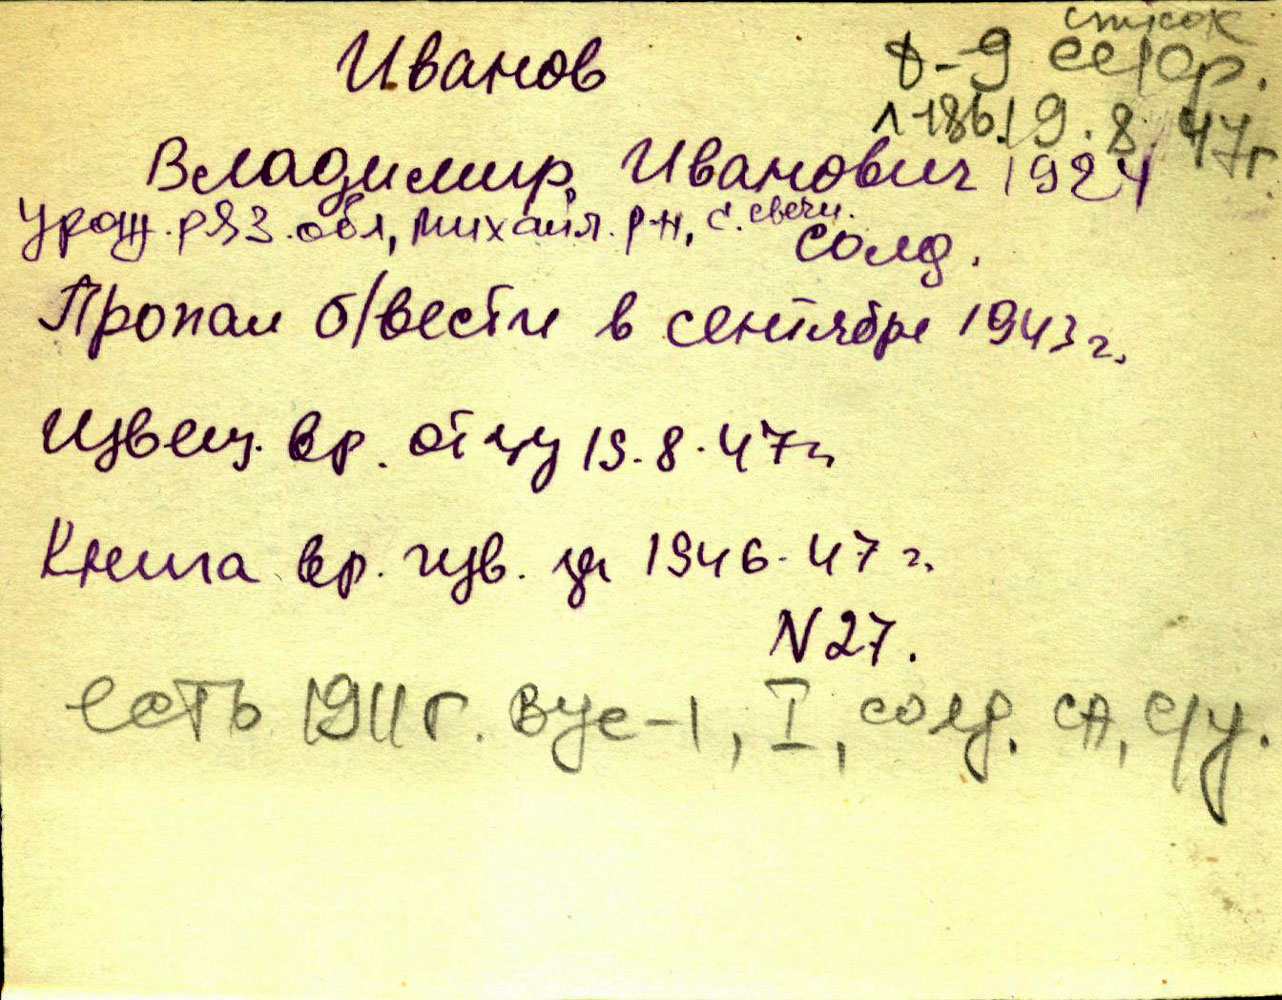 список
Иванов
д-9
л 186. 19.8.47г.
Владимир Иванович 1924
урож. ряз. обл, михайл. р-н, с. свечи.
солд.
Пропал б/вести в сентябре 1943 г.
Извещ. вр. отцу 19.8.47 г.
Книга вр. изв. за 1946-47 г.
N 27.
есть 1911 г. вус-1, I, солд. СА, с/у.